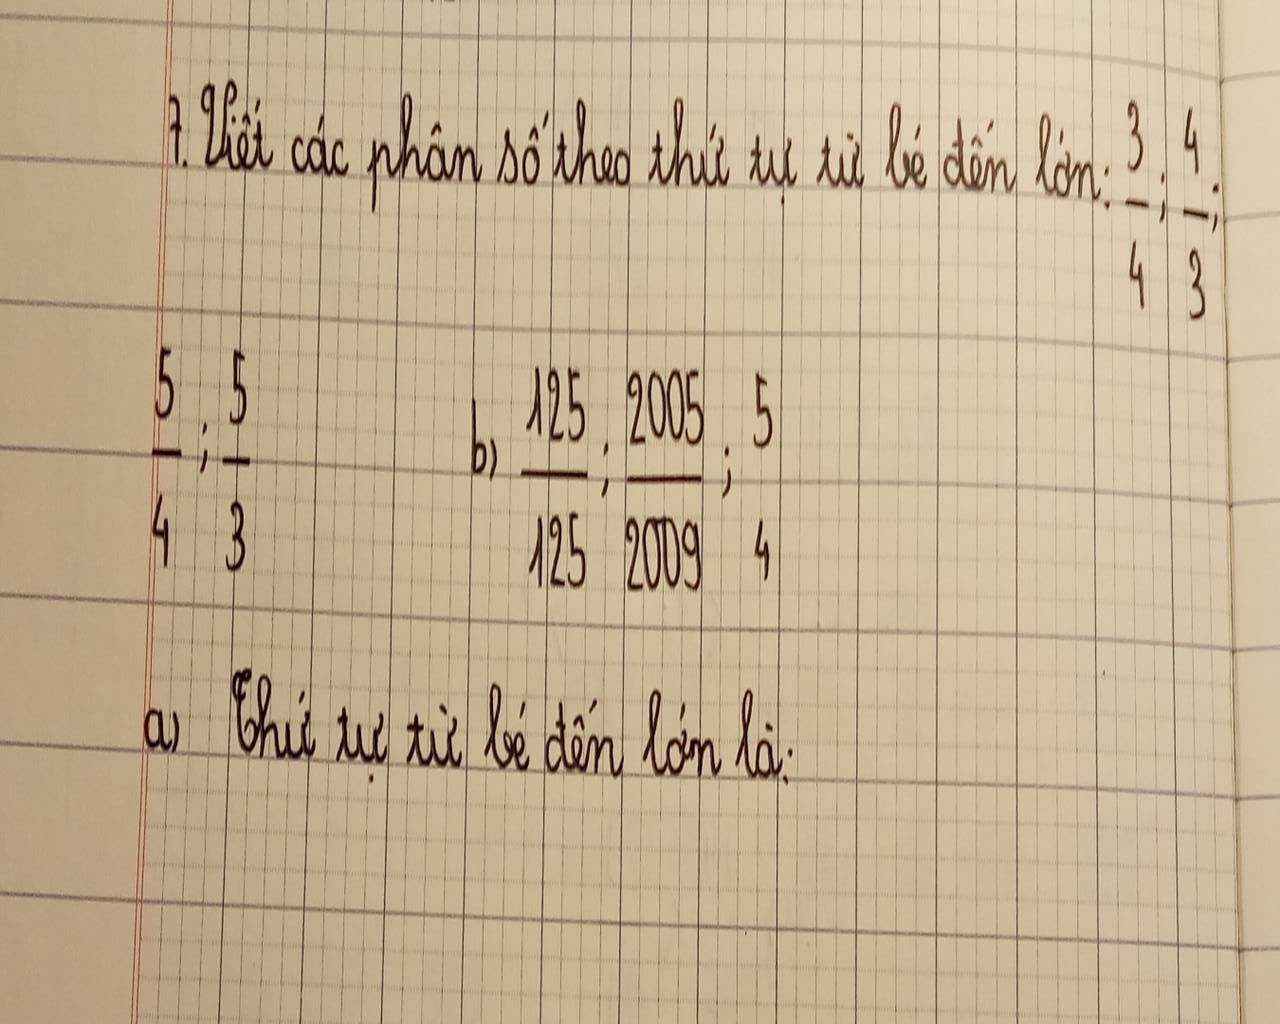 7. Viết các phân số theo thứ tự từ bé đến lớn: 3/4; 4/3;
5/4; 5/3 b) 125/125; 2005/2009; 5/4
a) Thứ tự từ bé đến lớn là: